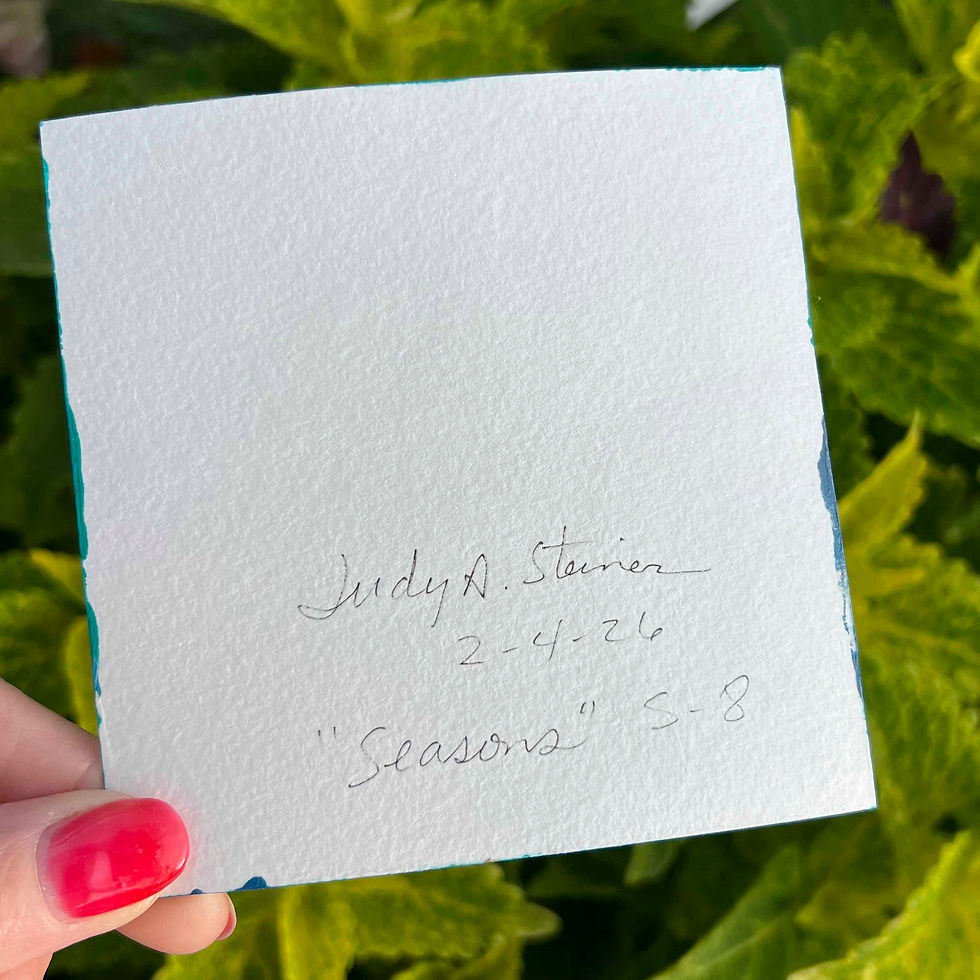 Judy A. Steiner
2-4-26
"Seasons" S-8